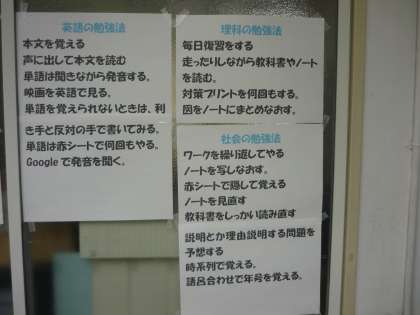 英語の勉強法
本文を覚える
声に出して本文を読む
単語は聞きながら発音する。
映画を英語で見る。
単語を覚えられないときは、利
き手と反対の手で書いてみる。
単語は赤シートで何回もやる。
Googleで発音を聞く。
理科の勉強法
毎日復習をする
走ったりしながら教科書やノート
を読む。
対策プリントを何回もする。
図をノートにまとめなおす。
社会の勉強法
ワークを繰り返してやる
ノートを写しなおす。
赤シートで隠して覚える
ノートを見直す
教科書をしっかい読み直す
説明とか理由説明する問題を
予想する
時系列で覚える。
語呂合わせで年号を覚える。